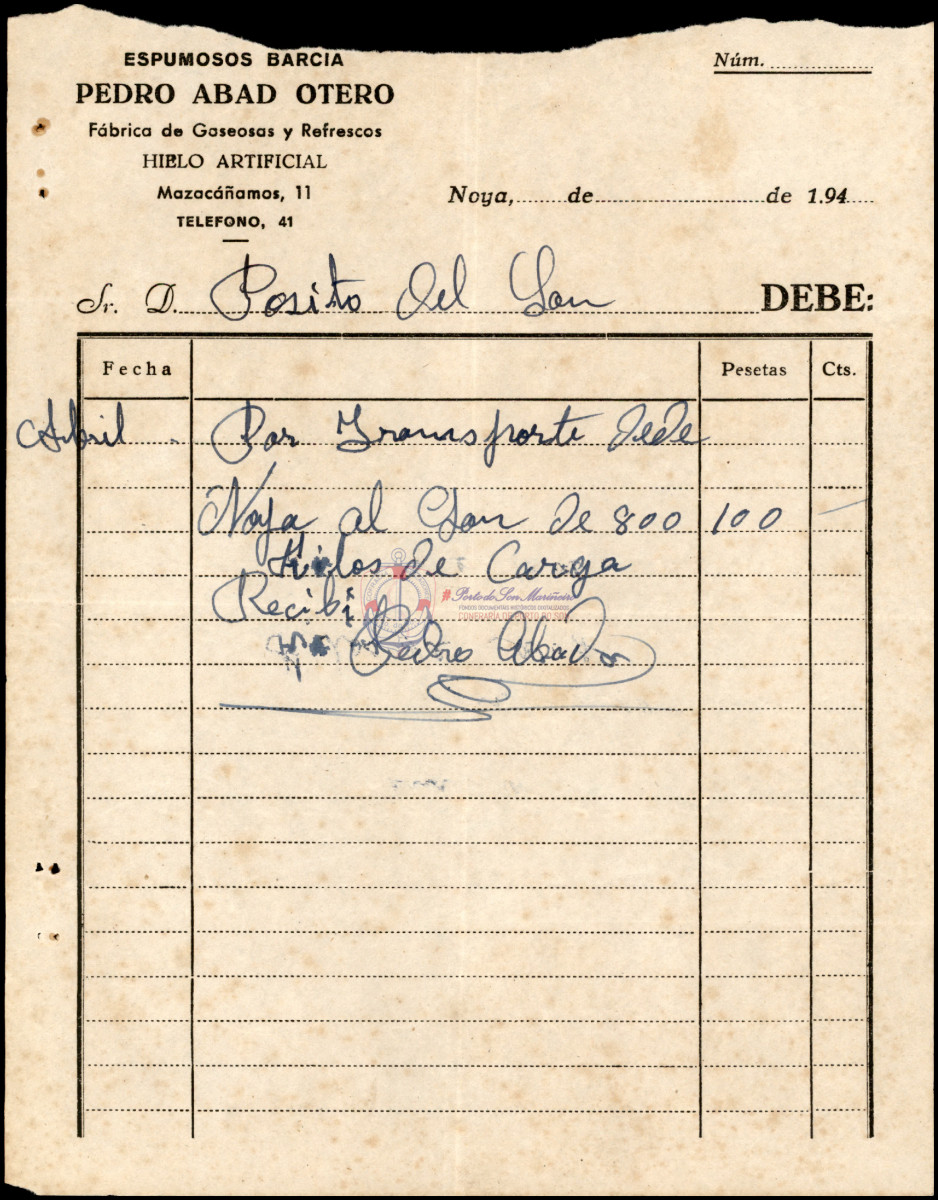 ESPUMOSOS BARCIA
PEDRO ABAD OTERO
Fábrica de Gaseosas y Refrescos
HIELO ARTIFICIAL
Mazacáñamos, 11
TELEFONO, 41
Núm.
Noya, de de 1.94
Sr. D. Posito del Son DEBE:
Fecha Pesetas Cts.
Abril Por Transporte dede
Noya al Son de 800 100 —
Kilos de Carga
Recibí
Pedro Abad
#PortodoSonMariñeiro
FONDOS DOCUMENTAIS HISTÓRICOS DIXITALIZADOS
CONFRARÍA DE PORTO DO SON